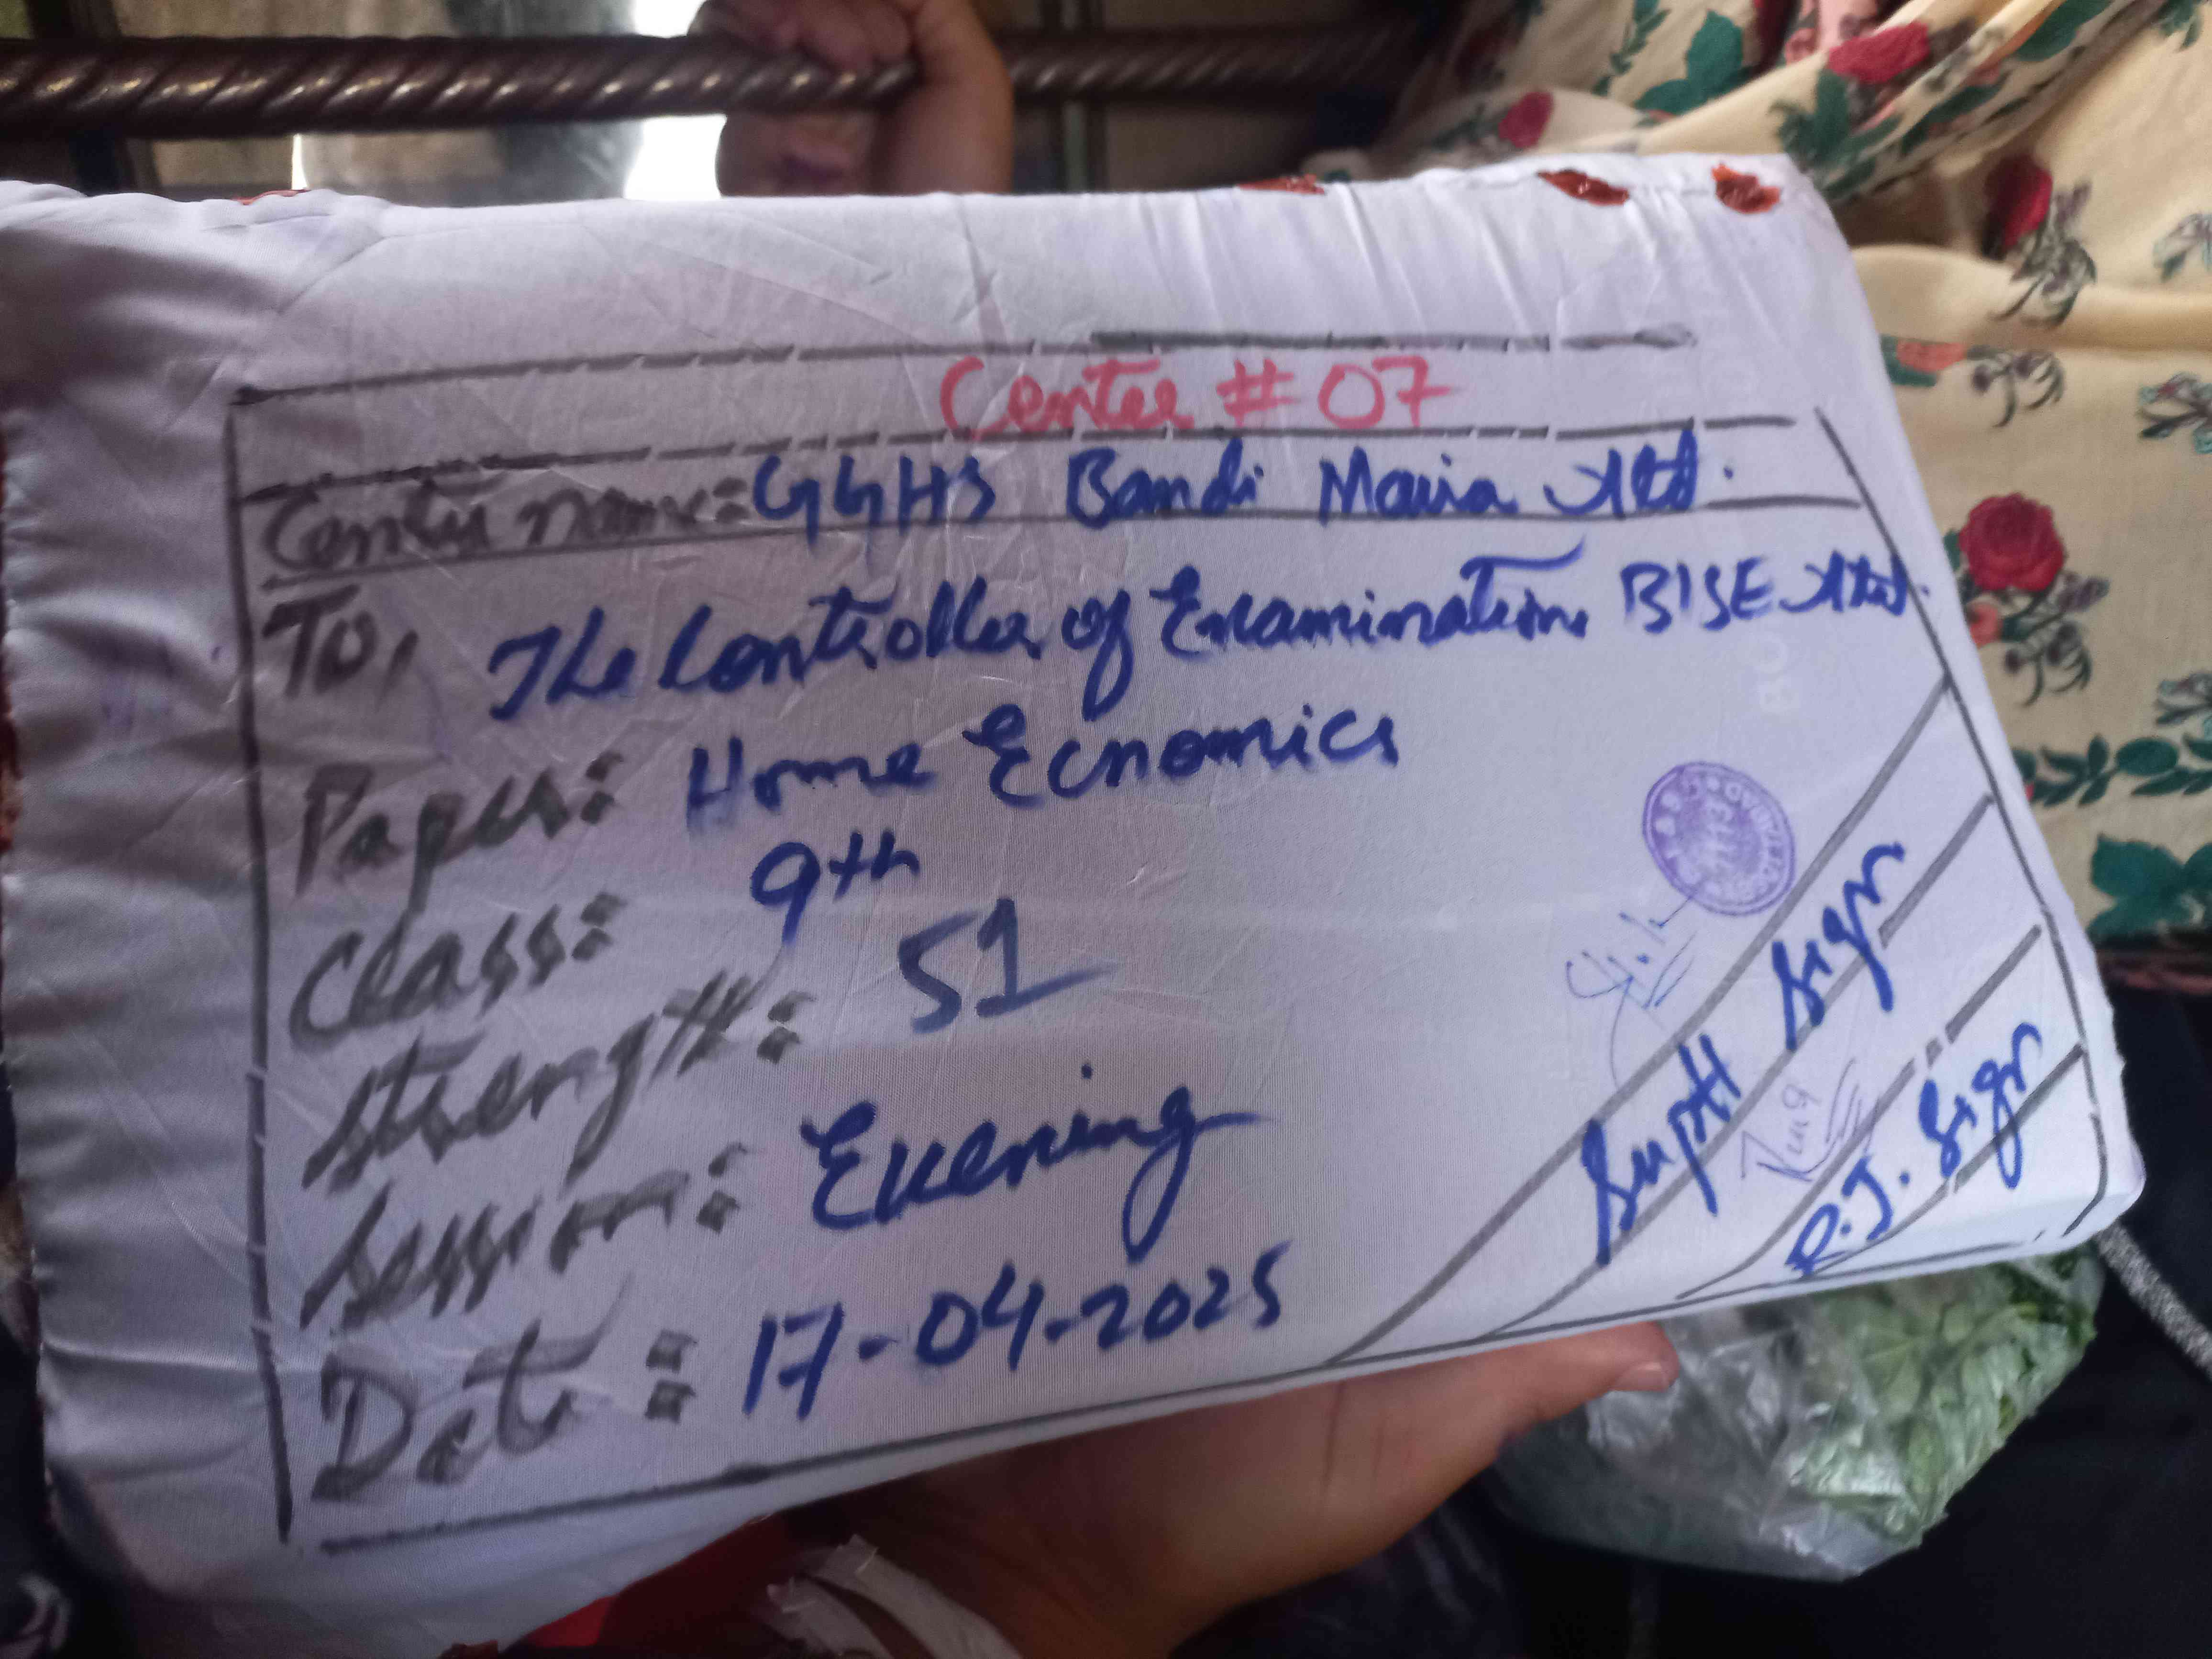 Center # 07
Center name: GGHS Bandi Maira Atd.
To,
The Controller of Examination BISE Atd.
Paper: Home Ecnomics
Class: 9th
Strength: 51
Session: Evening
Date: 17-04-2025
Supdt Sign
R.I. Sign